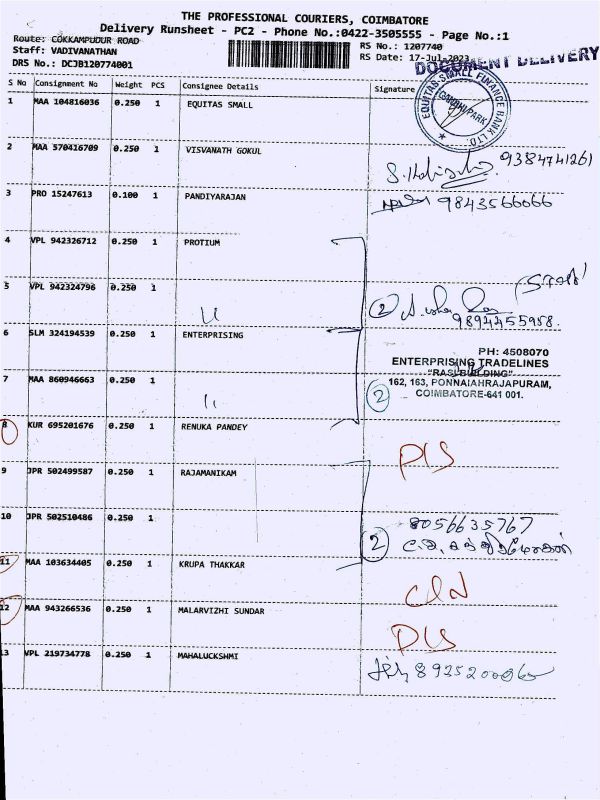 THE PROFESSIONAL COURIERS, COIMBATORE
Delivery Runsheet - PC2 - Phone No.:0422-3505555 - Page No.:1
Route: COKKAMPUDUR ROAD
Staff: VADIVANATHAN
DRS No.: DCJB120774001
RS No.: 1207740
RS Date: 17-Jul-2023
DOCUMENT DELIVERY
S No Consignment No Weight PCS Consignee Details Signature
EQUITAS SMALL FINANCE BANK LTD.
GANDHI PARK
1 MAA 104816036 0.250 1 EQUITAS SMALL
2 MAA 570416709 0.250 1 VISVANATH GOKUL
9384741261
3 PRO 15247613 0.100 1 PANDIYARAJAN 9843566066
4 VPL 942326712 0.250 1 PROTIUM
5 VPL 942324796 0.250 1
2
9894455958.
6 SLM 324194539 0.250 1 ENTERPRISING
PH: 4508070
ENTERPRISING TRADELINES
"RASI BUILDING"
162, 163, PONNAIAHRAJAPURAM,
COIMBATORE-641 001.
7 MAA 860946663 0.250 1 2
8 KUR 695201676 0.250 1 RENUKA PANDEY
9 JPR 502499587 0.250 1 RAJAMANIKAM
10 JPR 502510486 0.250 1
8056635767
2
11 MAA 103634405 0.250 1 KRUPA THAKKAR
12 MAA 943266536 0.250 1 MALARVIZHI SUNDAR
13 VPL 219734778 0.250 1 MAHALUCKSHMI